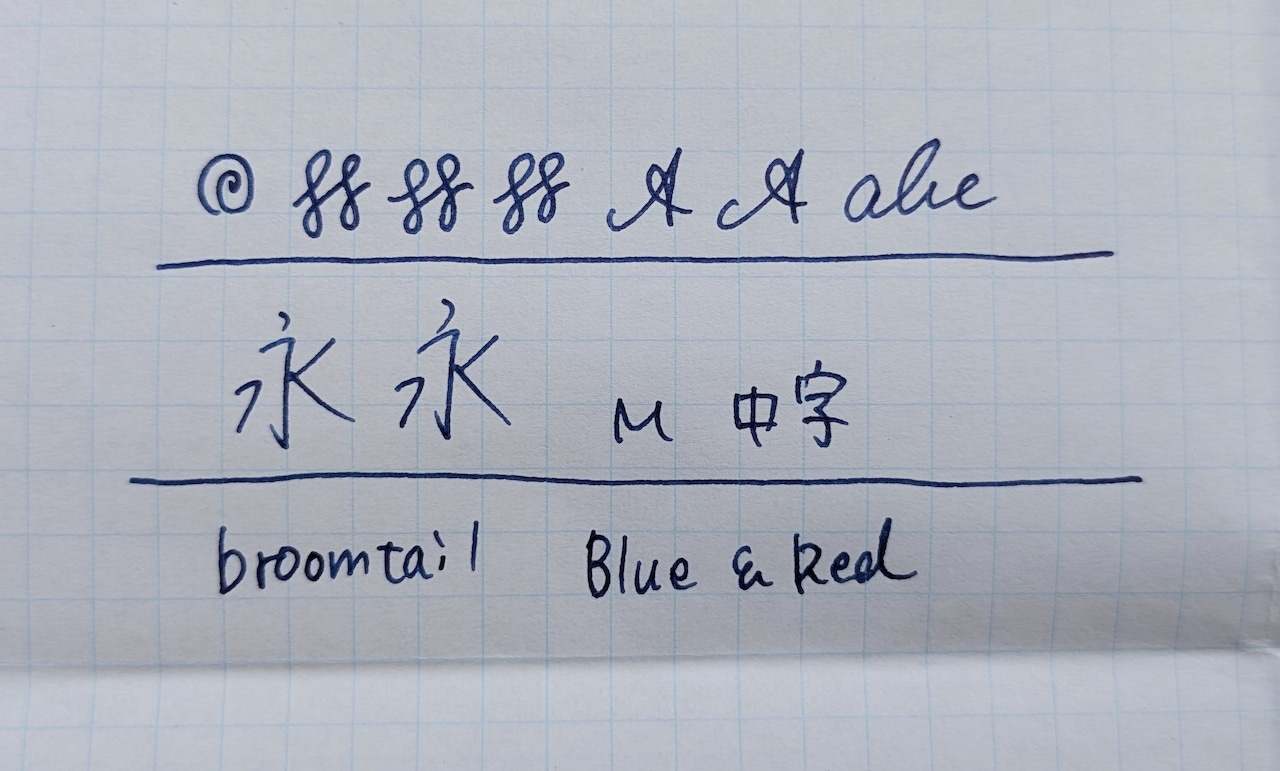 @ ff ff ff A A abc
永 永 M 中字
broomtail Blue & Red